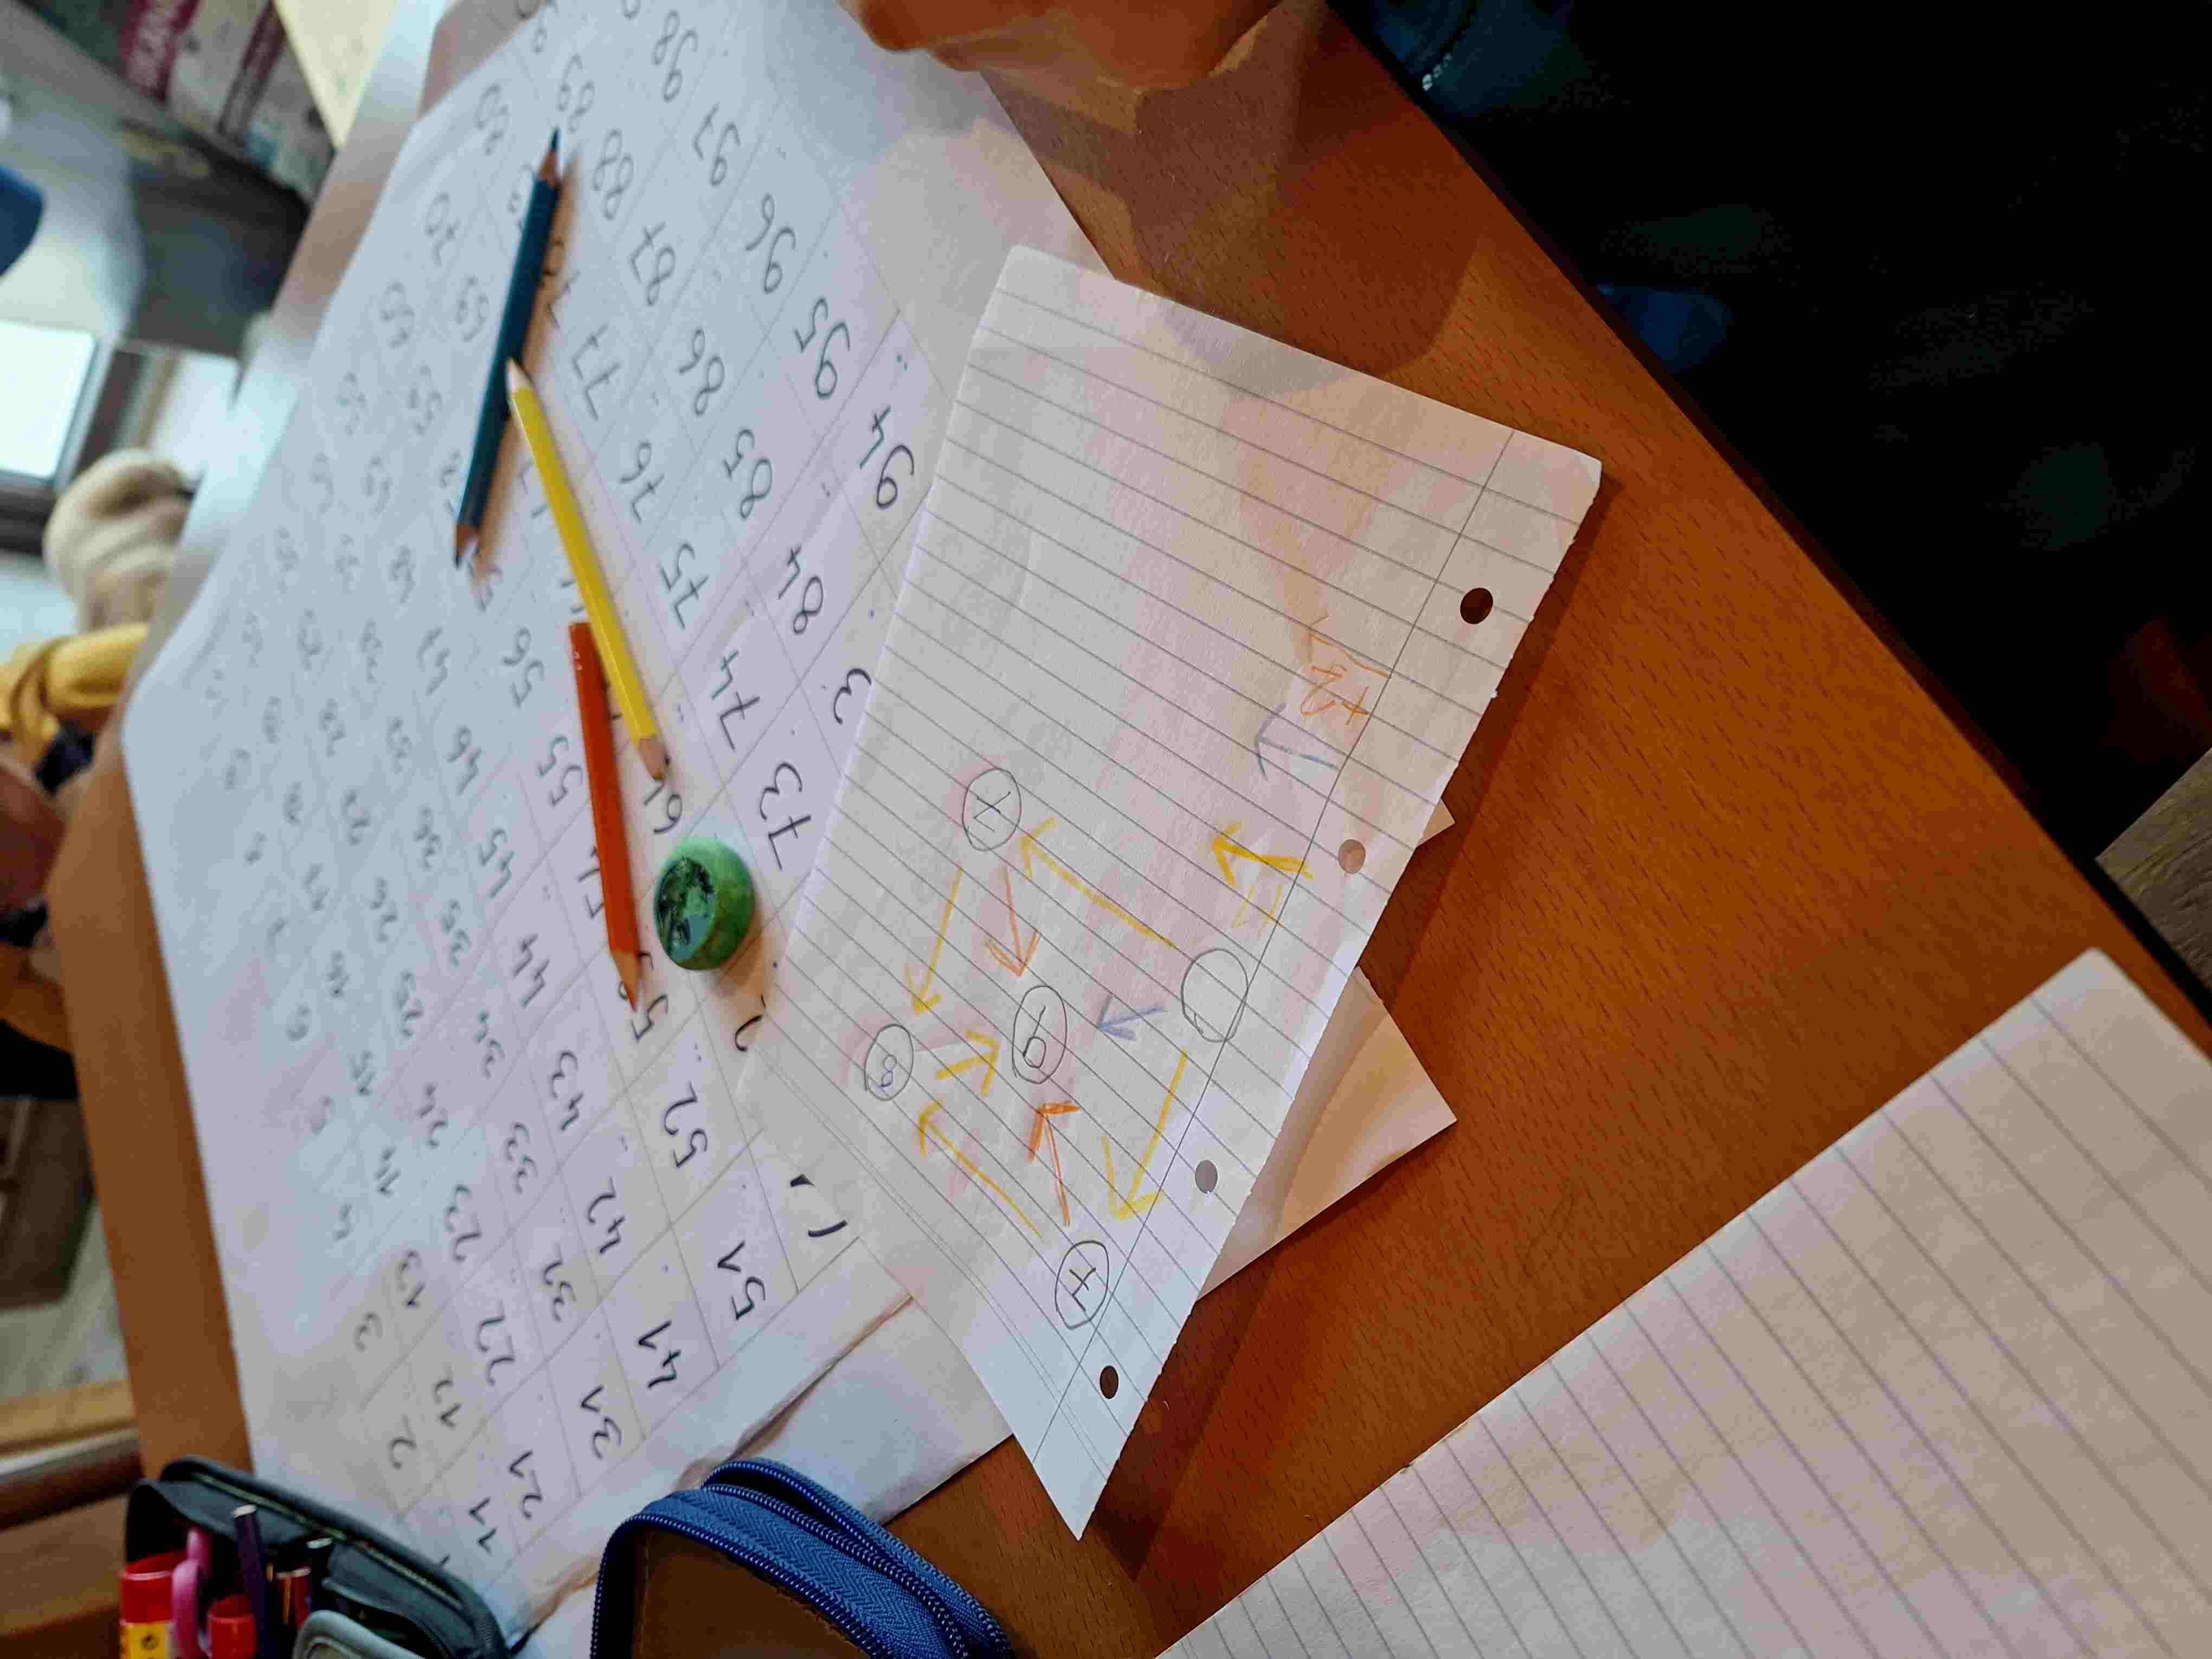 2 3 4 5 6 7 8 9
11 12 13 14 15 16 17 18 19
21 22 23 24 25 26 27 28 29 30
31 32 33 34 35 36 37 38 39 40
41 42 43 44 45 46 47 48 49 50
51 52 55 56 58 59 60
69 70
73 74 75 76 77 80
84 85 86 87 88 89
94 95 96 97 98
8
7
9
7